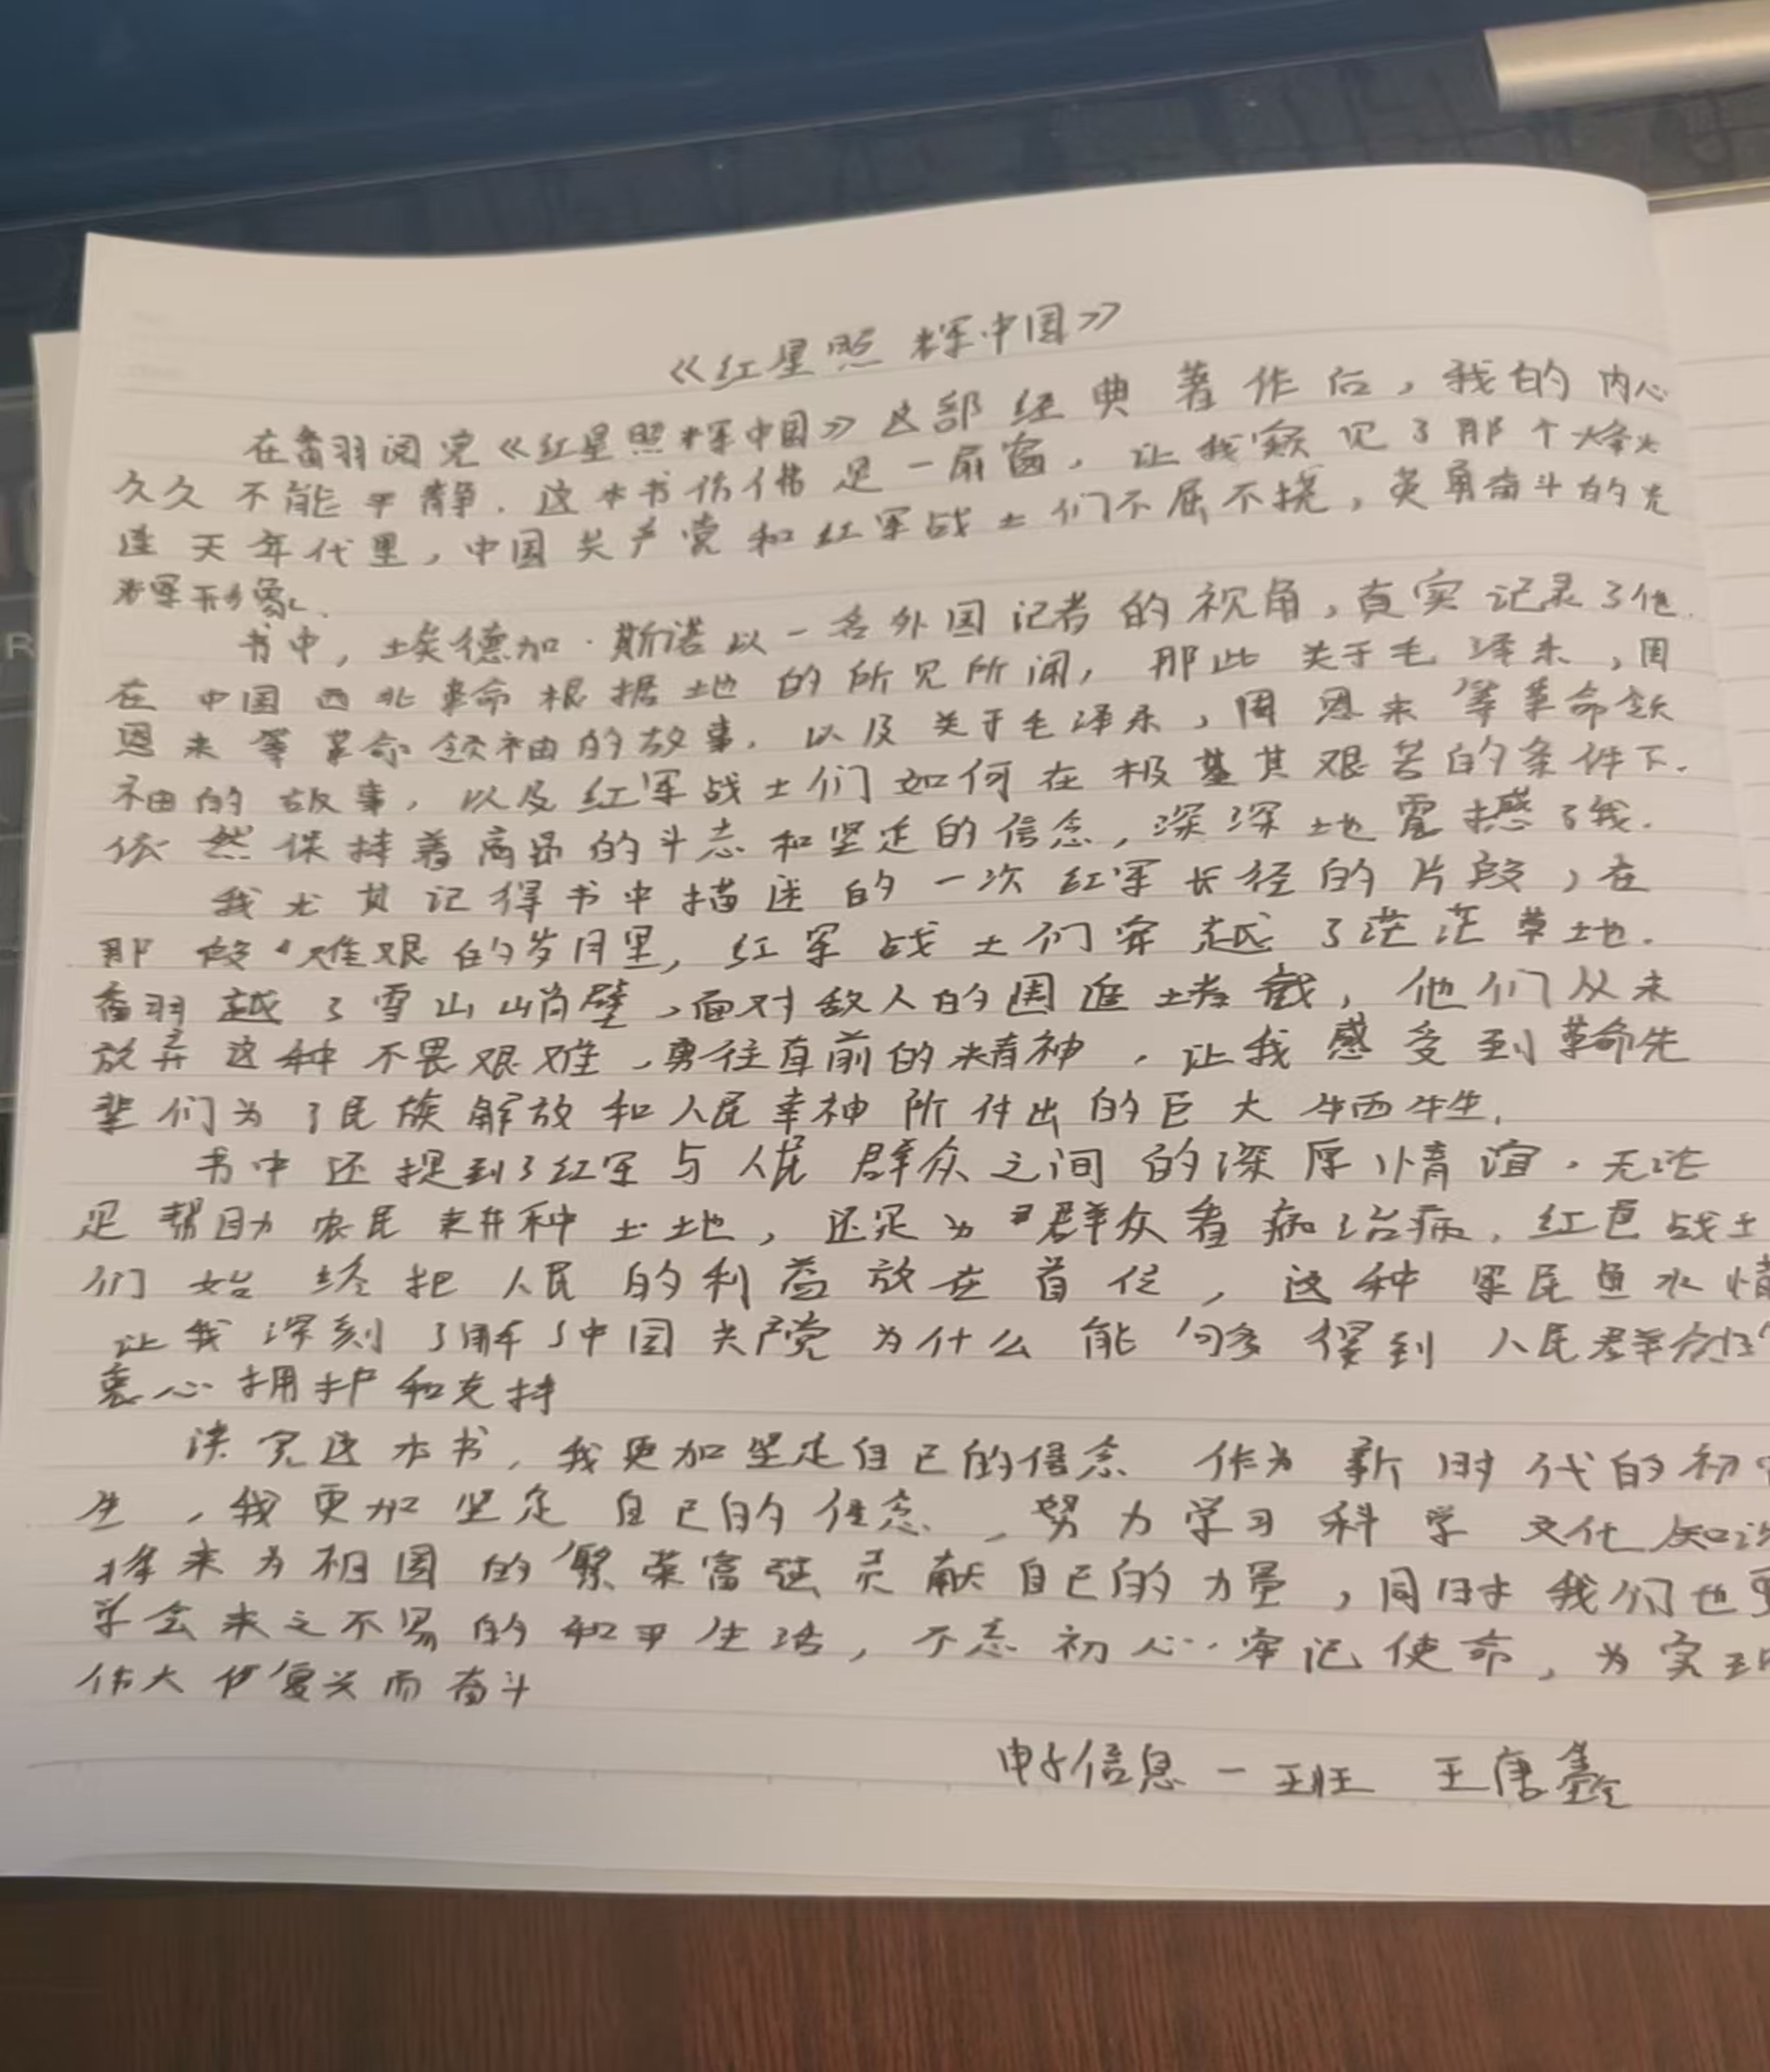 《红星照辉中国》
在翻阅完《红星照辉中国》这部经典著作后，我的内心
久久不能平静. 这本书仿佛是一扇窗，让我窥见了那个烽火
连天年代里，中国共产党和红军战士们不屈不挠，英勇奋斗的光
辉形象.
书中，埃德加·斯诺以一名外国记者的视角，真实记录了他
在中国西北革命根据地的所见所闻，那些关于毛泽东，周
恩来等革命领袖的故事. 以及关于毛泽东，周恩来等革命领
袖的故事，以及红军战士们如何在极其艰苦的条件下.
依然保持着高昂的斗志和坚定的信念，深深地震撼了我.
我尤其记得书中描述的一次红军长径的片段，在
那段难艰的岁月里，红军战士们穿越了茫茫草地.
翻越了雪山峭壁，面对敌人的围追堵截，他们从未
放弃这种不畏艰难，勇往直前的精神，让我感受到革命先
辈们为了民族解放和人民幸神所付出的巨大牺牲.
书中还提到了红军与人民群众之间的深厚情谊，无论
是帮助农民耕种土地，还是为群众看病治病，红色战士
们始终把人民的利益放在首位，这种军民鱼水情
让我深刻了解了中国共产党为什么能够得到人民群众
衷心拥护和支持
读完这本书，我更加坚定自己的信念 作为新时代的初
生，我更加坚定自己的信念，努力学习科学文化知识
将来为祖国的繁荣富强贡献自己的力量，同时我们也
学会来之不易的和平生活，不忘初心牢记使命，为实现
伟大复兴而奋斗
电子信息一班 王唐鑫